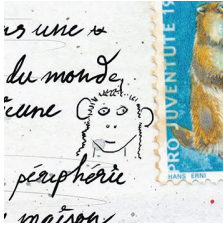 une
du monde,
périphérie
maison
PRO JUVENTUTE 19
HANS ERNI